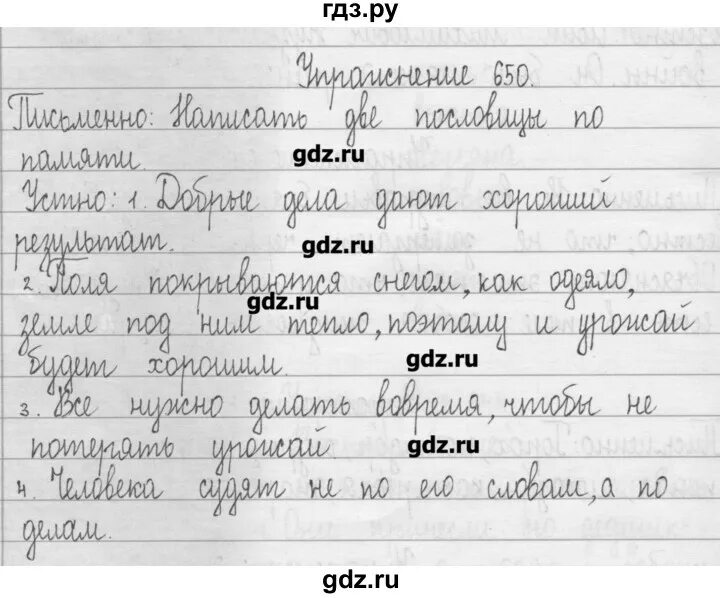 гдз.ру
Упражнение 650.
Письменно: Написать две пословицы по
памяти.
gdz.ru
Устно: 1. Добрые дела дают хороший
результат.
gdz.ru
2. Поля покрываются снегом, как одеяло,
gdz.ru
земле под ним тепло, поэтому и урожай
будет хорошим.
gdz.ru
3. Все нужно делать вовремя, чтобы не
потерять урожай
gdz.ru
4. Человека судят не по его словам, а по
делам.
gdz.ru
gdz.ru